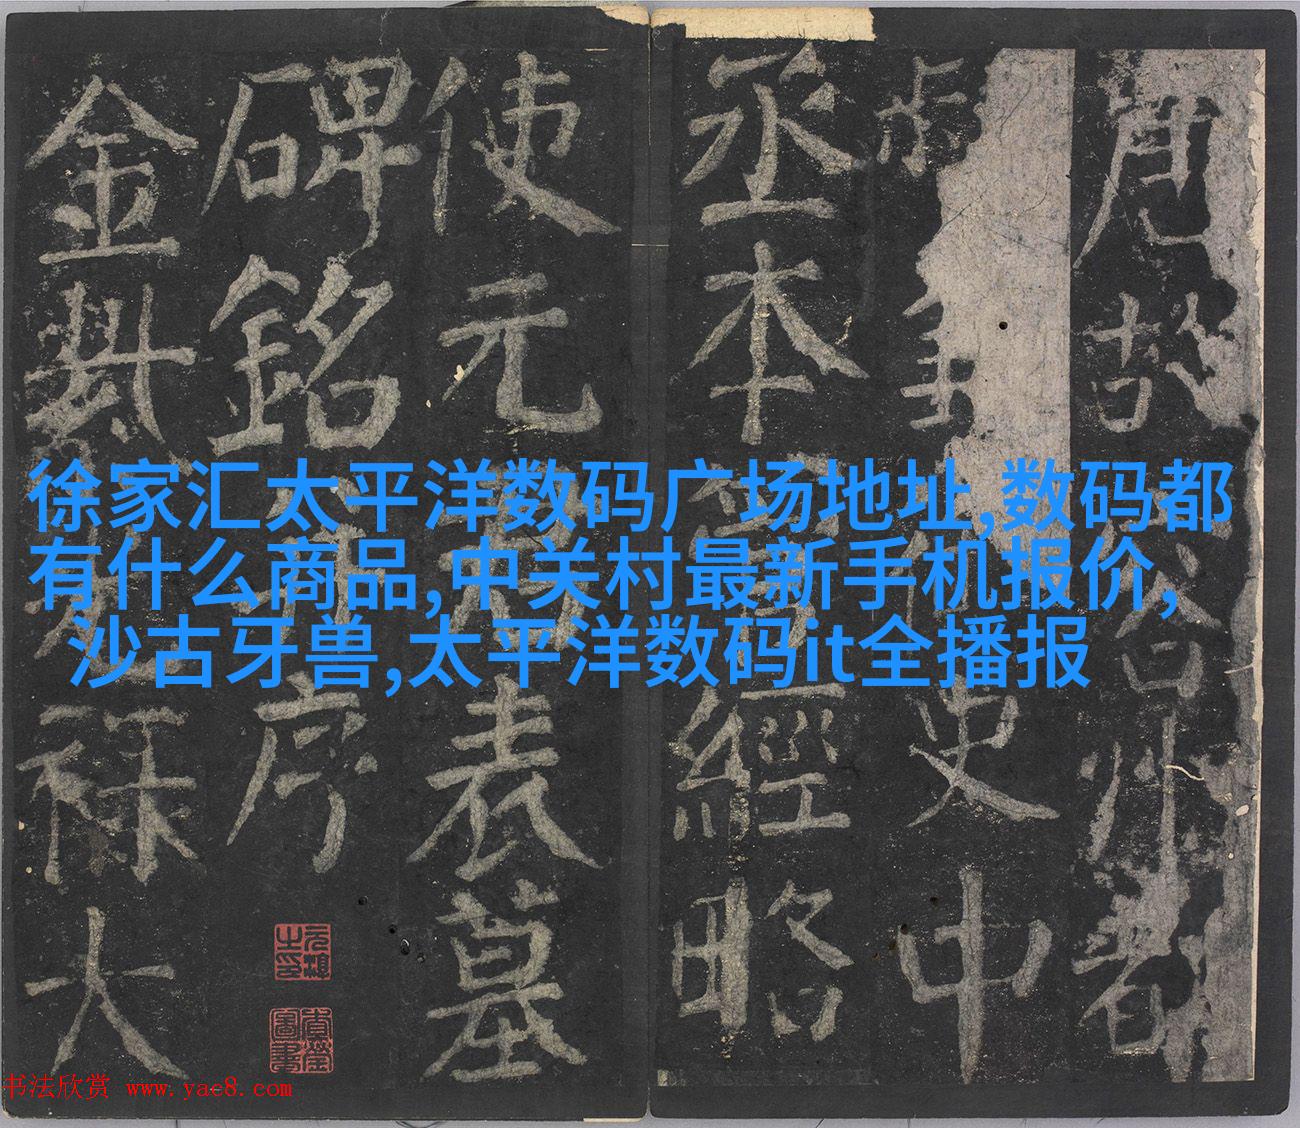 徐家汇太平洋数码广场地址,数码都
有什么商品,中关村最新手机报价,
沙古牙兽,太平洋数码it全播报
唐故容州都
史中
丞本管經略
使元君表墓
碑銘并序
金紫光祿大
书法欣赏 www.yac8.com